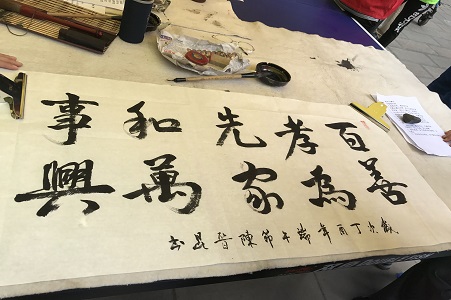 百善
孝為
先家
和萬
事興
歲次丁酉年端午節陳晉昆書